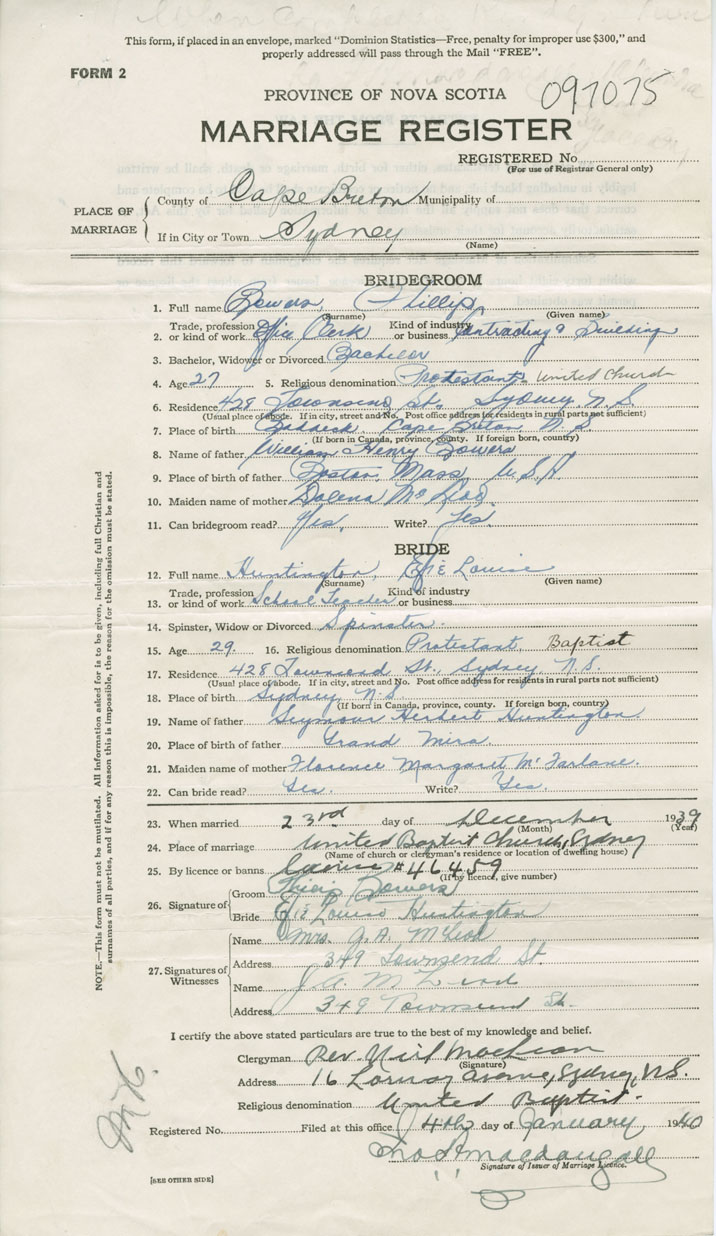 This form, if placed in an envelope, marked "Dominion Statistics—Free, penalty for improper use $300," and
properly addressed will pass through the Mail "FREE".
FORM 2
097075
PROVINCE OF NOVA SCOTIA
MARRIAGE REGISTER
REGISTERED No.
(For use of Registrar General only)
PLACE OF MARRIAGE
County of Cape Breton Municipality of
If in City or Town Sydney
(Name)
BRIDEGROOM
1. Full name Bowers, Phillip
(Surname) (Given name)
2. Trade, profession or kind of work Office Clerk Kind of industry or business Contracting & Building
3. Bachelor, Widower or Divorced Bachelor
4. Age 27 5. Religious denomination Protestant United Church
6. Residence 428 Townsend St., Sydney, N.S.
(Usual place of abode. If in city, street and No. Post office address for residents in rural parts not sufficient)
7. Place of birth Baddeck Cape Breton N.S.
(If born in Canada, province, county. If foreign born, country)
8. Name of father William Henry Bowers
9. Place of birth of father Boston, Mass U.S.A
10. Maiden name of mother Dolena
11. Can bridegroom read? Yes. Write? Yes.
BRIDE
12. Full name Huntington, Effie Louise
(Surname) (Given name)
13. Trade, profession or kind of work School Teacher Kind of industry or business
14. Spinster, Widow or Divorced Spinster.
15. Age 29. 16. Religious denomination Protestant Baptist
17. Residence 428 Townsend St., Sydney N.S.
(Usual place of abode. If in city, street and No. Post office address for residents in rural parts not sufficient)
18. Place of birth Sydney N.S.
(If born in Canada, province, county. If foreign born, country)
19. Name of father Seymour Herbert Huntington.
20. Place of birth of father Grand Mira.
21. Maiden name of mother Florence Margaret McFarlane.
22. Can bride read? Yes. Write? Yes.
23. When married 23rd day of December 1939
(Month) (Year)
24. Place of marriage United Baptist Church, Sydney
(Name of church or clergyman's residence or location of dwelling house)
25. By licence or banns Licence #46459
(If by licence, give number)
26. Signature of
Groom Bowers
Bride Effie Louise Huntington
27. Signatures of Witnesses
Name Mrs. J.A. McLeod
Address 349 Townsend St.
Name J. A. McLeod
Address 349 Townsend St.
I certify the above stated particulars are true to the best of my knowledge and belief.
Clergyman Rev. Neil MacLean
(Signature)
Address 16 Lorway Avenue, Sydney, N.S.
Religious denomination United Baptist.
Registered No. Filed at this office 4th day of January 1940
Macdougall
Signature of Issuer of Marriage Licence.
[SEE OTHER SIDE]
NOTE.—This form must not be mutilated. All information asked for is to be given, including full Christian and
surnames of all parties, and if for any reason this is impossible, the reason for the omission must be stated.